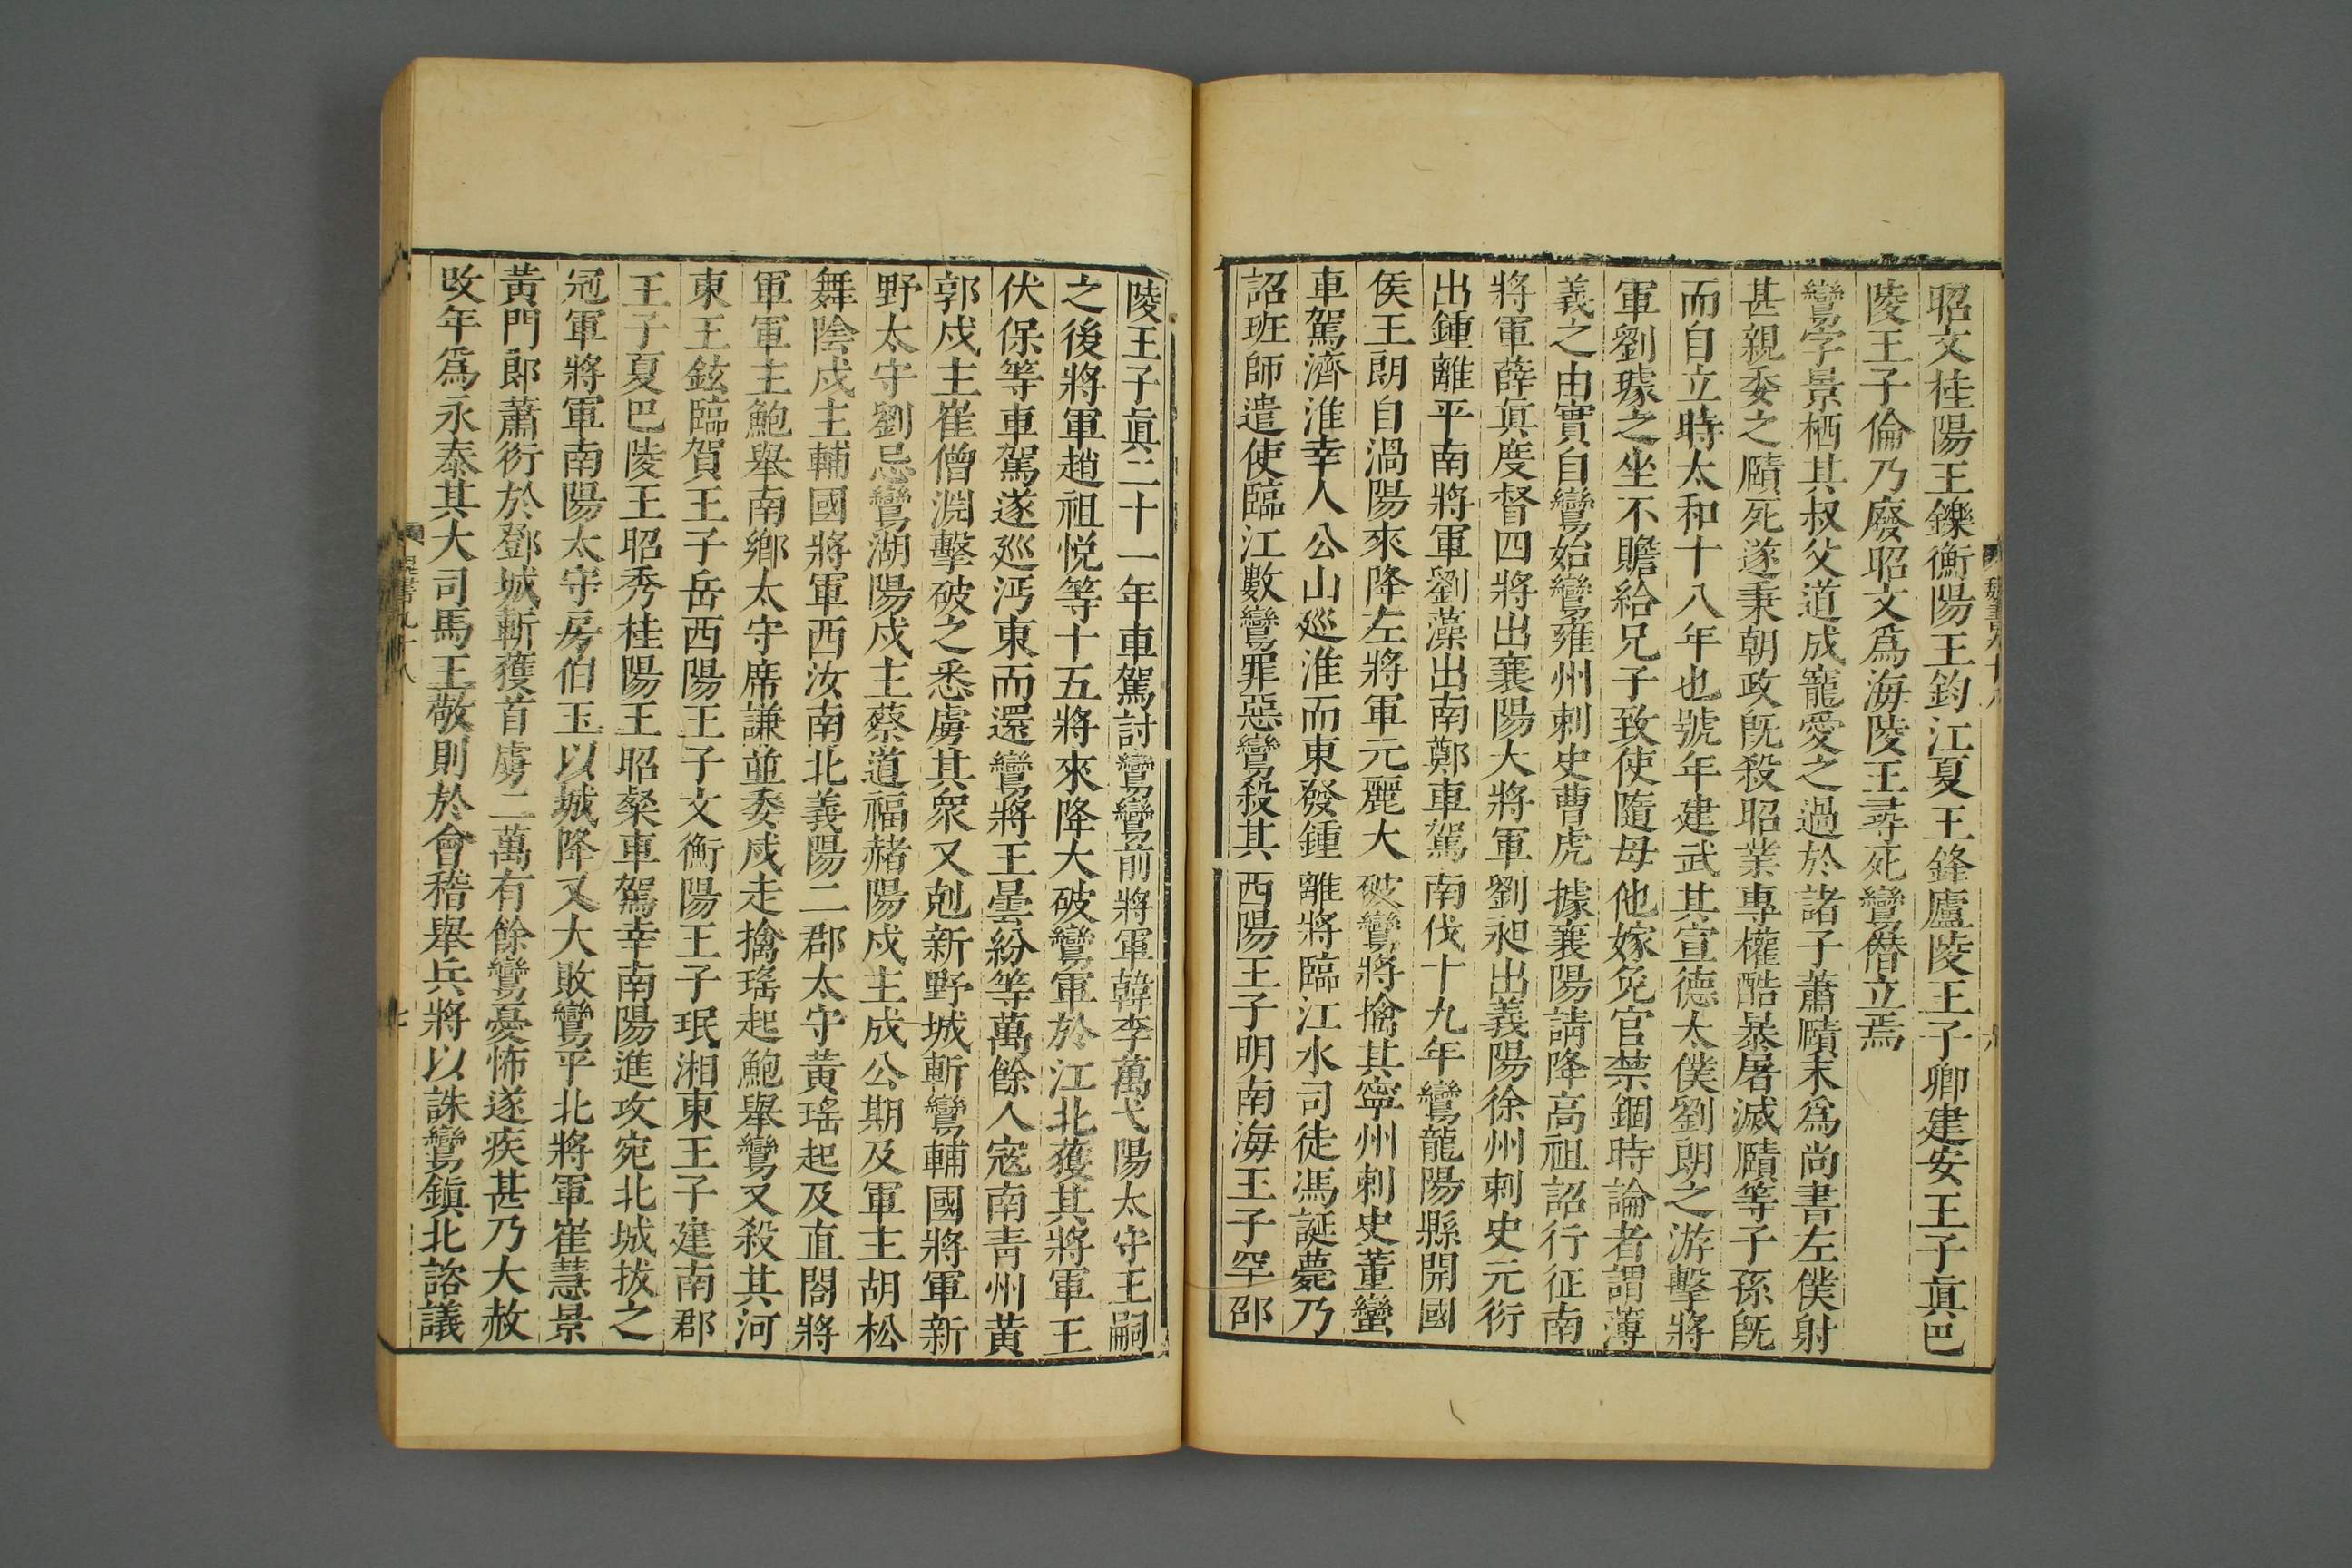 昭文桂陽王鑠衡陽王鈞江夏王鋒廬陵王子卿建安王子眞巴
陵王子倫乃廢昭文爲海陵王尋死鸞僭立焉
鸞字景栖其叔父道成寵愛之過於諸子蕭賾末爲尚書左僕射
甚親委之賾死遂秉朝政旣殺昭業專權酷暴屠滅賾等子孫旣
而自立時太和十八年也號年建武其宣德太僕劉朗之游擊將
軍劉璩之坐不贍給兄子致使隨母他嫁免官禁錮時論者謂薄
義之由實自鸞始鸞雍州刺史曹虎據襄陽請降高祖詔行征南
將軍薛眞度督四將出襄陽大將軍劉昶出義陽徐州刺史元衍
出鍾離平南將軍劉藻出南鄭車駕南伐十九年鸞龍陽縣開國
侯王朗自渦陽來降左將軍元麗大破鸞將擒其寧州刺史董蠻
車駕濟淮幸人公山巡淮而東發鍾離將臨江水司徒馮誕薨乃
詔班師遣使臨江數鸞罪惡鸞殺其西陽王子明南海王子罕邵
陵王子眞二十一年車駕討鸞鸞前將軍韓李萬弋陽太守王嗣
之後將軍趙祖悅等十五將來降大破鸞軍於江北獲其將軍王
伏保等車駕遂巡沔東而還鸞將王曇紛等萬餘人寇南靑州黄
郭戍主崔僧淵擊破之悉虜其衆又剋新野城斬鸞輔國將軍新
野太守劉忌鸞湖陽戍主蔡道福赭陽戍主成公期及軍主胡松
舞陰戍主輔國將軍西汝南北義陽二郡太守黄瑤起及直閤將
軍軍主鮑舉南鄉太守席謙並委戍走擒瑤起鮑舉鸞又殺其河
東王鉉臨賀王子岳西陽王子文衡陽王子珉湘東王子建南郡
王子夏巴陵王昭秀桂陽王昭粲車駕幸南陽進攻宛北城拔之
冠軍將軍南陽太守房伯玉以城降又大敗鸞平北將軍崔慧景
黄門郎蕭衍於鄧城斬獲首虜二萬有餘鸞憂怖遂疾甚乃大赦
改年爲永泰其大司馬王敬則於會稽舉兵將以誅鸞鎮北諮議
魏書九十八
七